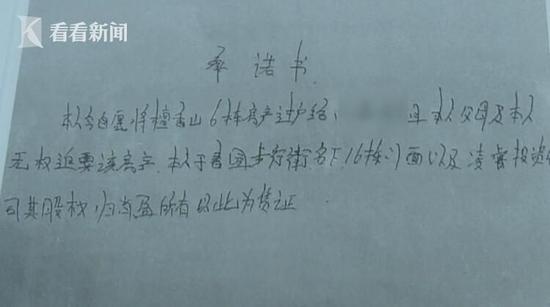 看看新闻
承诺书
本人自愿将檀香山6栋房产过户给 且本人父母及本人
无权追要该房产.本人于香园步行街名下16栋门面以及凌睿投资
司其股权归 所有以此为凭证.